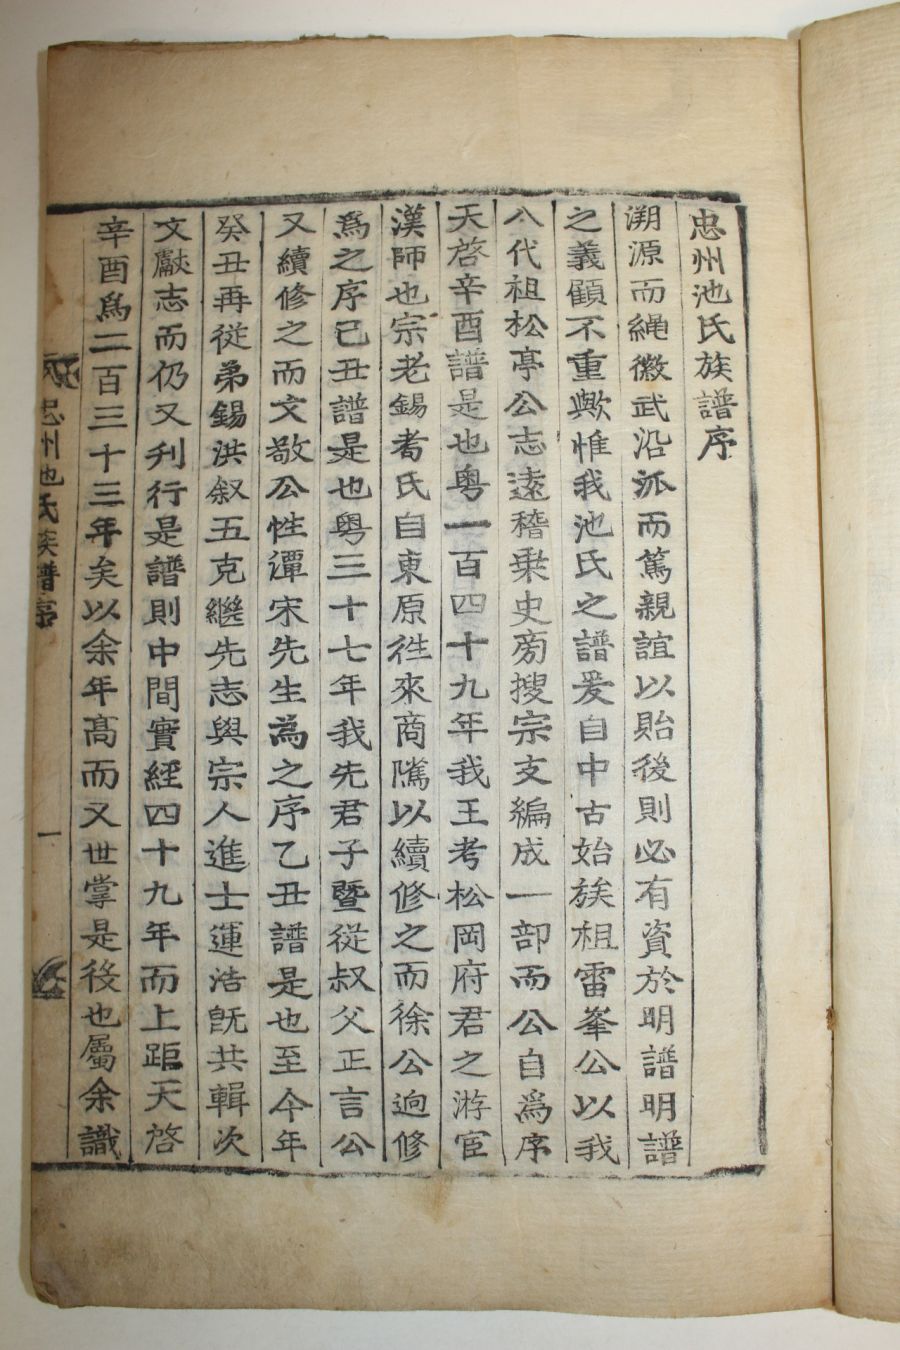 忠州池氏族譜序
溯源而繩徽武沿派而篤親誼以貽後則必有資於明譜明譜
之義顧不重歟惟我池氏之譜爰自中古始族祖雷峯公以我
八代祖松亭公志遠稽乗史旁搜宗支編成一部而公自爲序
天啓辛酉譜是也粤一百四十九年我王考松岡府君之游宦
漢師也宗老錫耉氏自東原徃來商隲以續修之而徐公逈修
爲之序己丑譜是也粤三十七年我先君子曁從叔父正言公
又續修之而文敬公性潭宋先生爲之序乙丑譜是也至今年
癸丑再從弟錫洪叙五克繼先志與宗人進士運浩旣共輯次
文獻志而仍又刋行是譜則中間實經四十九年而上距天啓
辛酉爲二百三十三年矣以余年高而又世掌是役也屬余識
忠州池氏族譜序
一